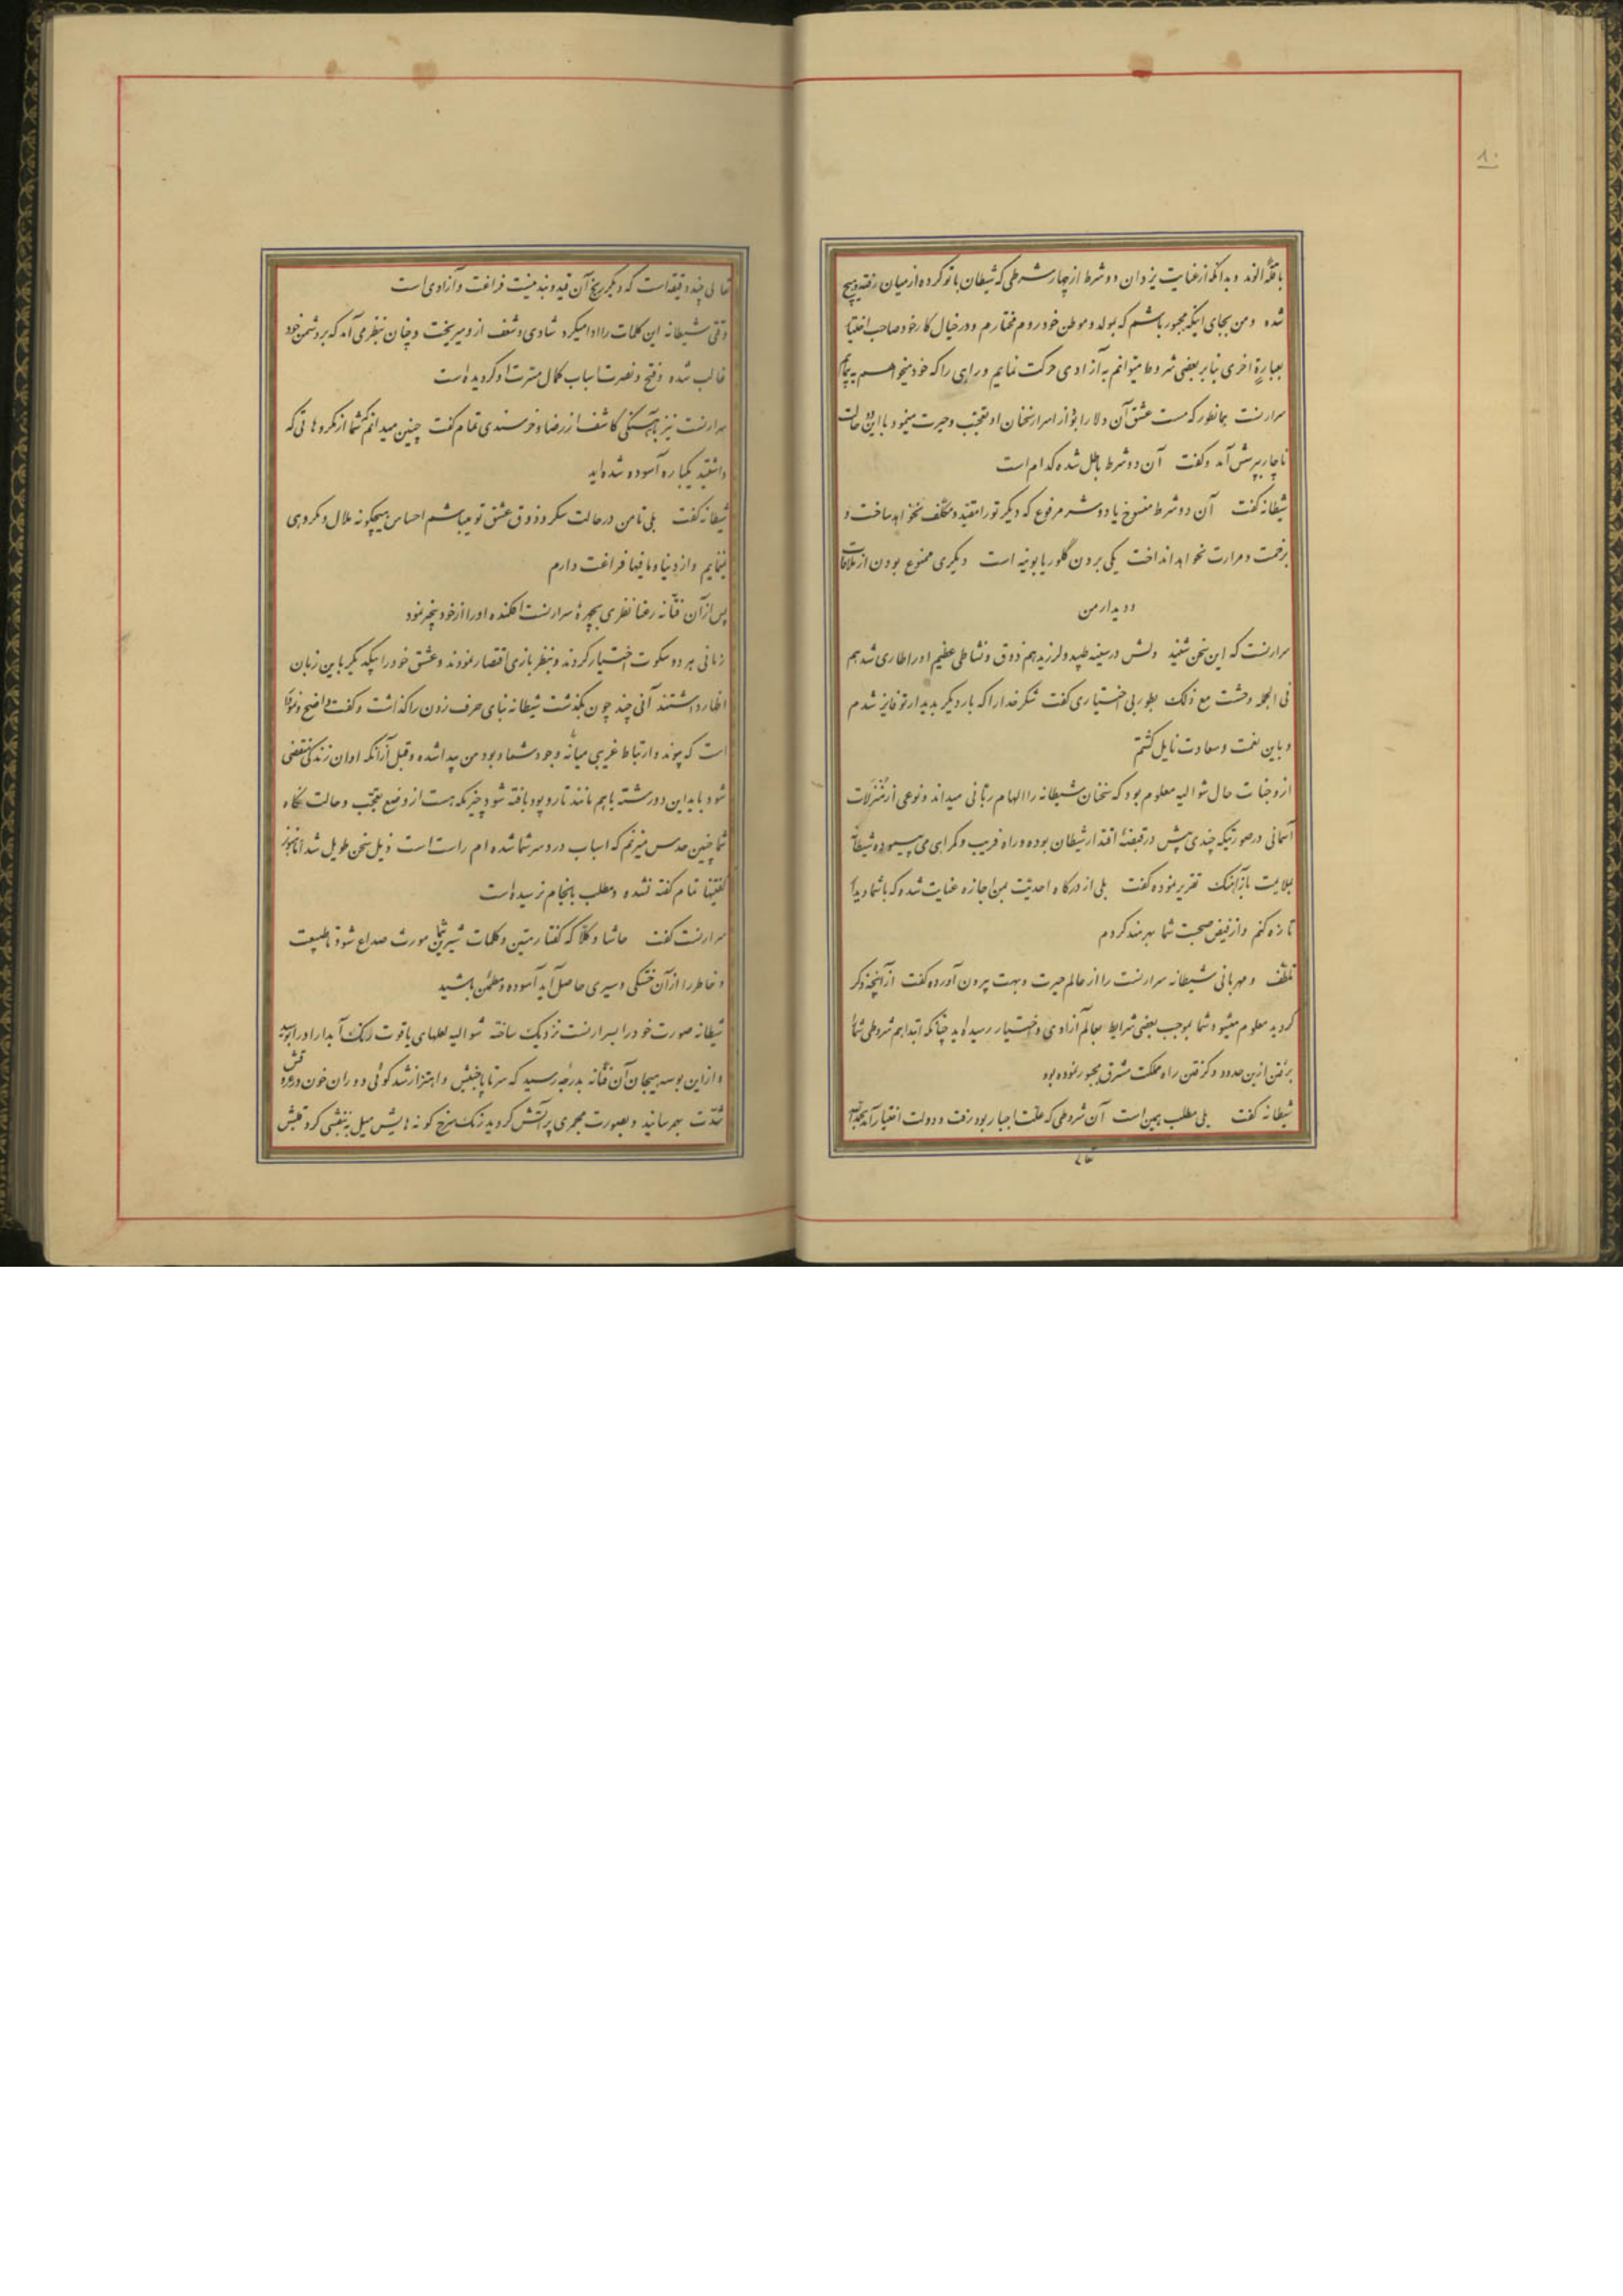 ۸۰
باقلهٔ الوند وبدانکه از عنایت یزدان دو شرط از چهار شرطی که شیطان با تو کرده از میان رفته وهیچ
شده ومن بجای اینکه مجبور باشم که بمولد وموطن خود روم مختارم ودر خیال کار خود صاحب اختیا
بعبارةٍ اخری بنا بر بعضی شروط میتوانم به آزادی حرکت نمایم وراهی را که خود میخواهم به پیمایم
سرارنست بهمانطور که مست عشق آن دلارا بود از اسرار سخنان او تعجب وحیرت مینمود با این دو حالت
ناچار بپرسش آمد وگفت آن دو شرط باطل شده کدام است
شیطانه گفت آن دو شرط منسوخ یا دو شر مرفوع که دیگر تو را مقید ومکلف نخواهد ساخت و
بزحمت ومرارت نخواهد انداخت یکی بردن گلوریا بوینه است دیگری ممنوع بودن از ملاقات
ودیدار من
سرارنست که این سخن شنید دلش در سینه طپید ولرزید هم ذوق ونشاطی عظیم او را طاری شد هم
فی الجمله وحشت مع ذلک بطور بی اختیاری گفت شکر خدا را که بار دیگر بدیدار تو فایز شدم
وباین نعمت وسعادت نایل گشتم
از وجنات حال شوالیه معلوم بود که سخنان شیطانه را الهام ربّانی میداند ونوعی از مُنزَلات
آسمانی در صورتیکه چندی پیش در قبضهٔ اقتدار شیطان بوده وراه فریب وگمراهی می پیموده شیطانه
بملایمت باز آهنگ تقریر نموده گفت بلی از درگاه احدیّت بمن اجازه عنایت شده که با شما دیدا
تازه کنم واز فیض صحبت شما بهره‌مند گردم
تلطّف ومهربانی شیطانه سرارنست را از عالم حیرت وبهت بیرون آورده گفت از آنچه ذکر
گردید معلوم میشود شما بموجب بعضی شرایط بعالم آزادی واختیار رسیده‌اید چنانکه ابتدا هم شروطی شما را
برفتن ازین حدود وگرفتن راه مملکت مشرق مجبور نموده بود
شیطانه گفت بلی مطلب همین است آن شروطی که علّت اجبار بود رفت ودولت اختیار آمد بحمدالله
تعالی
تعالی چند دقیقه است که دیگر رنج آن قید وبند نیست فراغت وآزادی است
وقتی شیطانه این کلمات را ادا میکرد شادی وشعف از او میریخت وچنان بنظر می آمد که بر دشمن خود
غالب شده وفتح ونصرت اسباب کمال مسرّت او گردیده است
سرارنست نیز بآهستگی کاشف از رضا وخرسندی تمام گفت چنین میدانم که شما از مکروهاتی که
داشتید یکباره آسوده شده‌اید
شیطانه گفت بلی تا من در حالت سکر وذوق عشق تو میباشم احساس هیچگونه ملال ومکروهی
نمینمایم واز دنیا ومافیها فراغت دارم
پس از آن فتّانه رعنا نظری بچهرهٔ سرارنست افکنده او را از خود بیخبر نمود
زمانی هر دو سکوت اختیار کردند وبنظر بازی اقتصار نمودند وعشق خود را بیکدیگر باین زبان
اظهار داشتند آنی چند چون بگذشت شیطانه بنای حرف زدن را گذاشت وگفت واضح
است که پیوند وارتباط غریبی میانهٔ وجود شما وبود من پیدا شده وقبل از آنکه اوان زندگی منقضی
شود باید این دو رشته با هم مانند تار وپود بافته شود چیزیکه هست از وضع تعجّب وحالت نگاه
شما چنین حدس میزنم که اسباب درد سر شما شده‌ام راست است ذیل سخن طویل شد امّا هنوز
گفتنیها تمام گفته نشده ومطلب بانجام نرسیده است
سرارنست گفت حاشا وکلّا که گفتار متین وکلمات شیرین شما مورث صداع شود یا طبیعت
وخاطر را از آن خستگی وسیری حاصل آید آسوده ومطمئن باشید
شیطانه صورت خود را بسرارنست نزدیک ساخته شوالیه لعلهای یاقوت رنگ آبدار او را بوسید
واز این بوسه هیجان آن فتّانه بدرجهٔ رسید که سرتاپا جنبش واهتزاز شد گوئی دوران خون در عروقش
شدّت بهم رسانید وبصورت مجمری پر آتش گردید رنگ سرخ گونه‌هایش میل ببنفشی کرد تپش